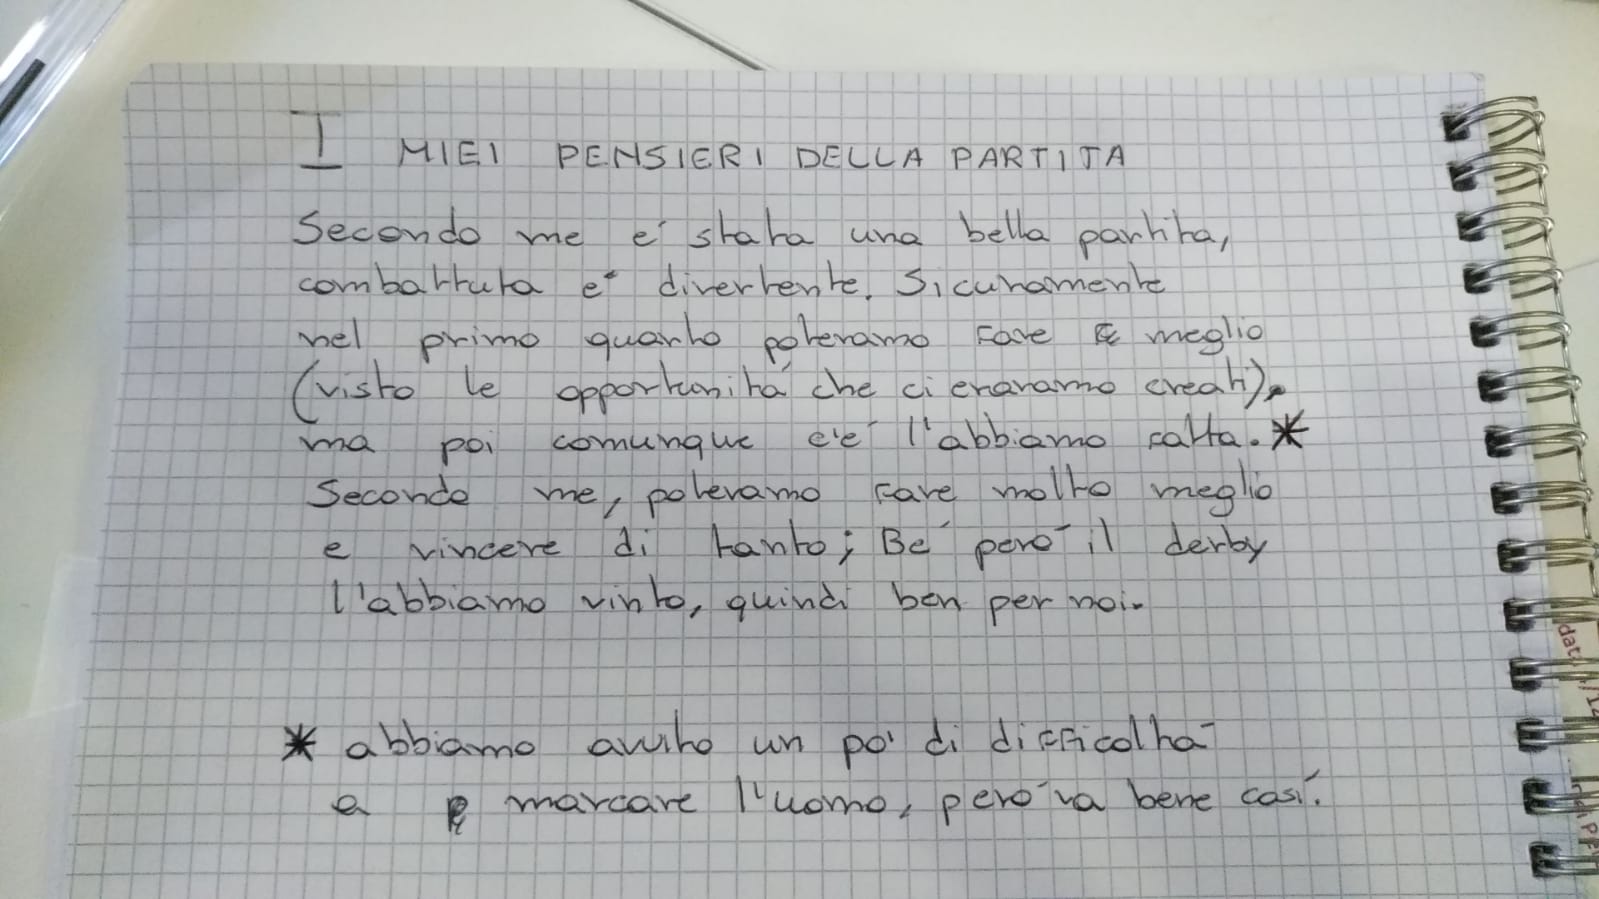 I MIEI PENSIERI DELLA PARTITA
Secondo me é stata una bella partita,
combattuta e divertente. Sicuramente
nel primo quarto potevamo fare meglio
(visto le opportunitá che ci eravamo creati),
ma poi comunque ce l'abbiamo fatta. *
Secondo me, potevamo fare molto meglio
e vincere di tanto; Bé però il derby
l'abbiamo vinto, quindi ben per noi.
* abbiamo avuto un po' di difficoltà
a marcare l'uomo, però va bene così.
data